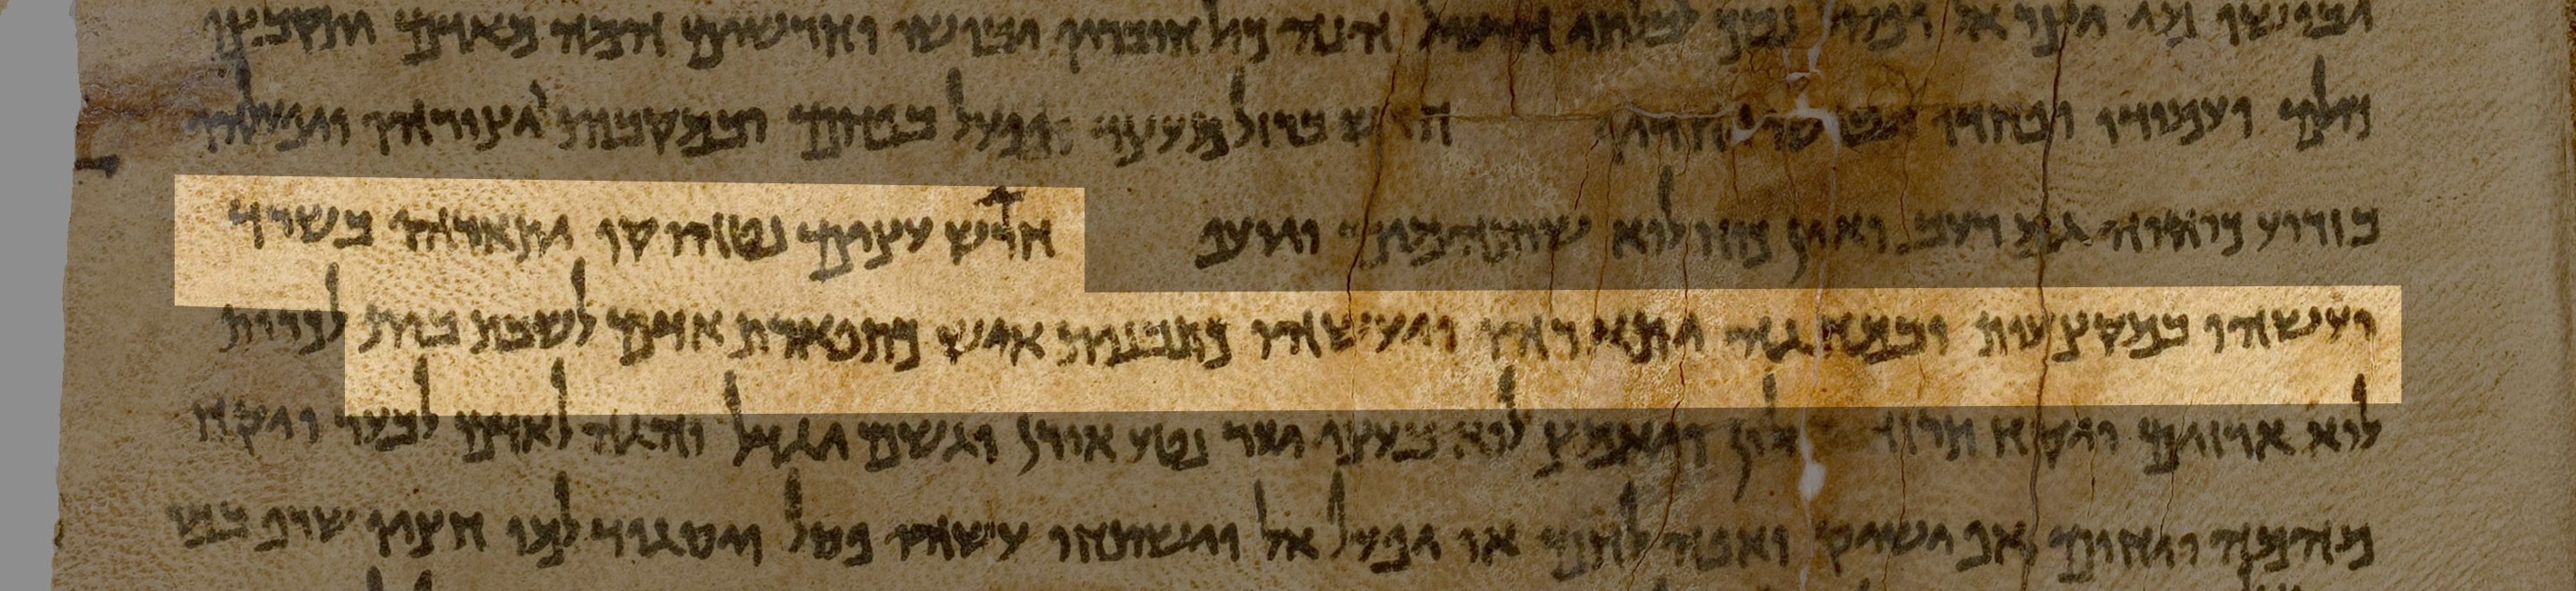 יבושו מי יצר אל ופסל נסך לבלתי הועיל הנה כול חובריו יבושו וחרשים המה מאדם יתקבצו
כולם ויעמודו ופחדו ויבושו יחדיו חרש ברזל מעצד ופעל בפחם ובמקבות יצורהו ויפעלהו
בזרוע כוחוה גם רעב ואין כוח ולוא שתה מים ויעף חרש עצים נטהו קו ויתארהו בשרד
ויעשהו במקצעות ובמחוגה ותארהו ויעשהו כתבנית איש כתפארת אדם לשבת בית לכרות
לוא ארזים ויקח תרזה ואלון ויאמץ לוא בעצי יער נטע אורן וגשם יגדל והיה לאדם לבער ויקח
מהמה ויחום אף ישיק ואפה לחם או יפעל אל וישתחו עשהו פסל ויסגוד למו חציו שרף במו